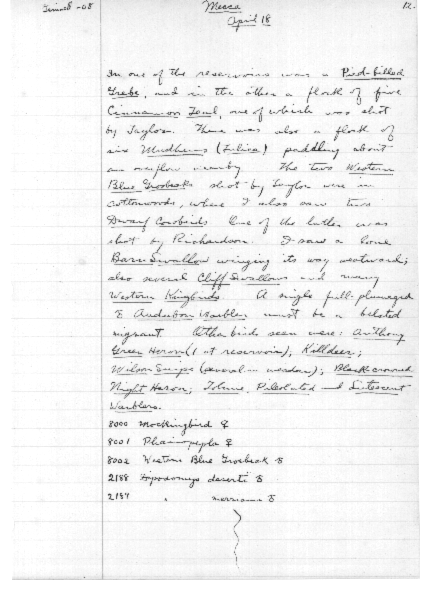 Grinnell -08
Mecca
12.
April 18
In one of the reservoirs was a Pied-billed
Grebe, and in the other a flock of five
Cinnamon Teal, one of which was shot
by Taylor. There was also a flock of
six Mudhens (Fulica) paddling about
an overflow nearby. The two Western
Blue Grosbeaks shot by Taylor were in
cottonwoods, where I also saw two
Dwarf Cowbirds. One of the latter was
shot by Richardson. I saw a lone
Barn Swallow winging its way westward;
also several Cliff Swallows and many
Western Kingbirds. A single full-plumaged
♂ Audubon Warbler must be a belated
migrant. Other birds seen were: Anthony
Green Heron (1 at reservoir); Killdeer;
Wilson Snipe (several in meadow); Black-crowned
Night Heron; Tolmie, Pileolated and Lutescent
Warblers.
8000 Mockingbird ♀
8001 Phainopepla ♀
8002 Western Blue Grosbeak ♂
2188 Dipodomys deserti ♂
2187 " merriami ♂